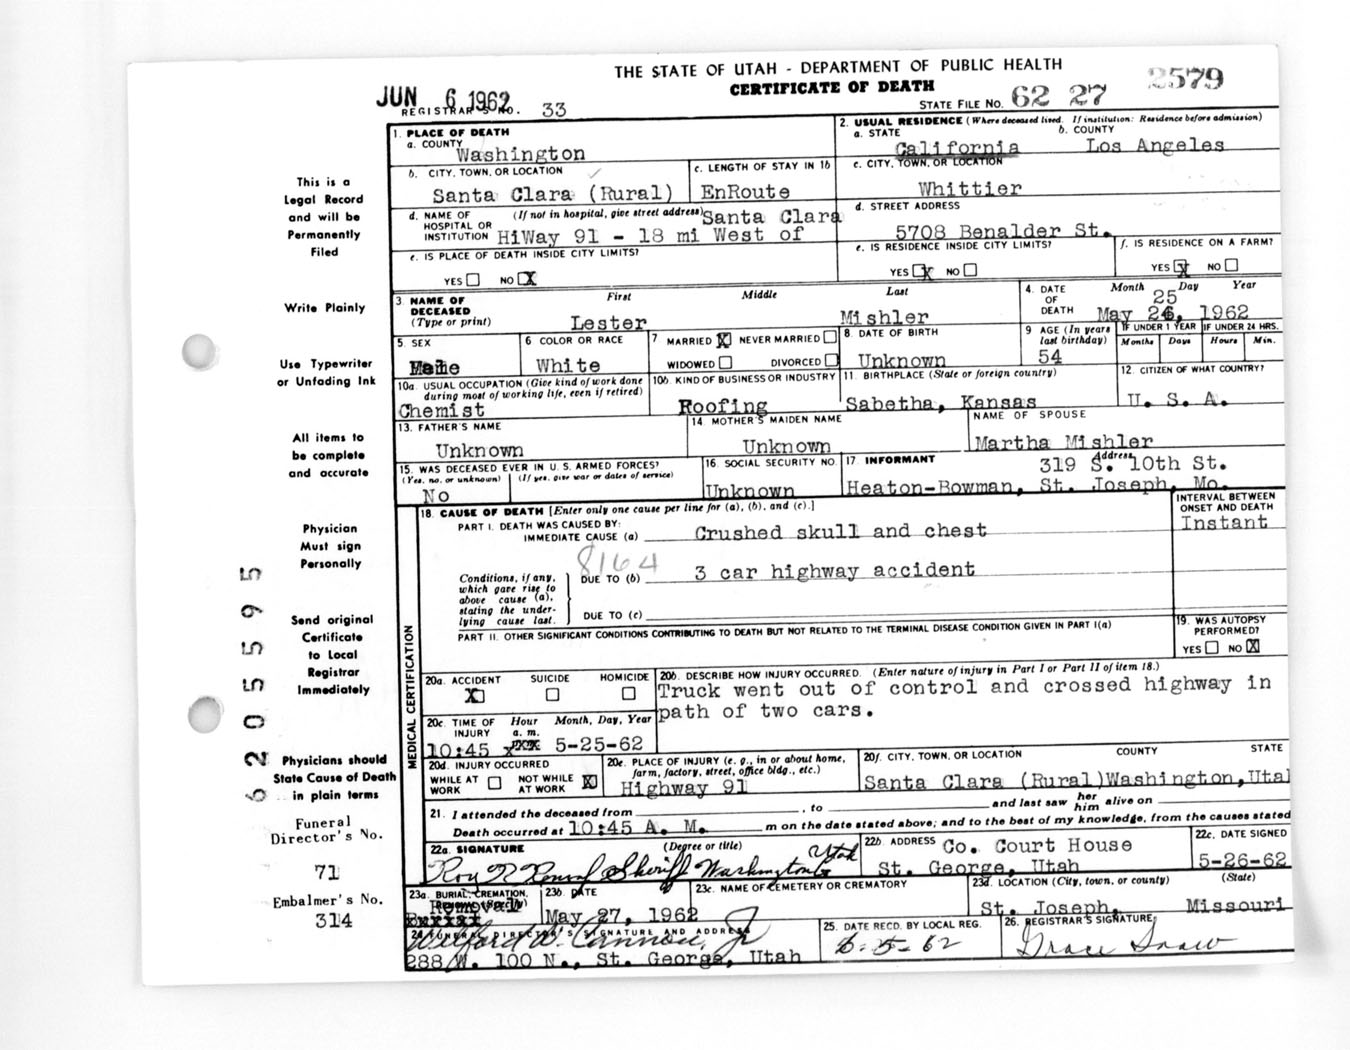 THE STATE OF UTAH - DEPARTMENT OF PUBLIC HEALTH
CERTIFICATE OF DEATH
2579
JUN 6 1962
REGISTRAR'S NO. 33
STATE FILE NO. 62 27
1. PLACE OF DEATH
a. COUNTY
Washington
2. USUAL RESIDENCE (Where deceased lived. If institution: Residence before admission)
a. STATE b. COUNTY
California Los Angeles
b. CITY, TOWN, OR LOCATION
Santa Clara (Rural)
c. LENGTH OF STAY IN 1b
EnRoute
c. CITY, TOWN, OR LOCATION
Whittier
d. NAME OF HOSPITAL OR INSTITUTION (If not in hospital, give street address) Santa Clara
HiWay 91 - 18 mi West of
d. STREET ADDRESS
5708 Benalder St.
e. IS PLACE OF DEATH INSIDE CITY LIMITS?
YES NO X
e. IS RESIDENCE INSIDE CITY LIMITS?
YES X NO
f. IS RESIDENCE ON A FARM?
YES X NO
3. NAME OF DECEASED (Type or print)
First Middle Last
Lester Mishler
4. DATE OF DEATH Month Day Year
25
May 26, 1962
5. SEX
Male
6 COLOR OR RACE
White
7 MARRIED X NEVER MARRIED
WIDOWED DIVORCED
8. DATE OF BIRTH
Unknown
9 AGE (In years last birthday)
54
IF UNDER 1 YEAR
Months Days
IF UNDER 24 HRS.
Hours Min.
10a. USUAL OCCUPATION (Give kind of work done during most of working life, even if retired)
Chemist
10b. KIND OF BUSINESS OR INDUSTRY
Roofing
11. BIRTHPLACE (State or foreign country)
Sabetha, Kansas
12. CITIZEN OF WHAT COUNTRY?
U. S. A.
13. FATHER'S NAME
Unknown
14. MOTHER'S MAIDEN NAME
Unknown
NAME OF SPOUSE
Martha Mishler
15. WAS DECEASED EVER IN U. S. ARMED FORCES?
(Yes, no, or unknown) (If yes, give war or dates of service)
No
16. SOCIAL SECURITY NO.
Unknown
17. INFORMANT Address
319 S. 10th St.
Heaton-Bowman, St. Joseph, Mo.
18. CAUSE OF DEATH [Enter only one cause per line for (a), (b), and (c).]
PART I. DEATH WAS CAUSED BY:
IMMEDIATE CAUSE (a) Crushed skull and chest
INTERVAL BETWEEN ONSET AND DEATH
Instant
8164
Conditions, if any, which gave rise to above cause (a), stating the underlying cause last.
DUE TO (b) 3 car highway accident
DUE TO (c)
PART II. OTHER SIGNIFICANT CONDITIONS CONTRIBUTING TO DEATH BUT NOT RELATED TO THE TERMINAL DISEASE CONDITION GIVEN IN PART I(a)
19. WAS AUTOPSY PERFORMED?
YES NO X
MEDICAL CERTIFICATION
20a. ACCIDENT SUICIDE HOMICIDE
X
20b. DESCRIBE HOW INJURY OCCURRED. (Enter nature of injury in Part I or Part II of item 18.)
Truck went out of control and crossed highway in
path of two cars.
20c. TIME OF INJURY Hour a. m. Month, Day, Year
10:45 xxx 5-25-62
20d. INJURY OCCURRED
WHILE AT WORK NOT WHILE AT WORK X
20e. PLACE OF INJURY (e. g., in or about home, farm, factory, street, office bldg., etc.)
Highway 91
20f. CITY, TOWN, OR LOCATION COUNTY STATE
Santa Clara (Rural)Washington,Utah
21. I attended the deceased from , to and last saw her him alive on
Death occurred at 10:45 A. M. m on the date stated above; and to the best of my knowledge, from the causes stated
22a. SIGNATURE (Degree or title)
Sheriff Washington Utah
22b. ADDRESS Co. Court House
St. George, Utah
22c. DATE SIGNED
5-26-62
23a. BURIAL, CREMATION,
Removal
23b. DATE
May 27, 1962
23c. NAME OF CEMETERY OR CREMATORY
23d. LOCATION (City, town, or county) (State)
St. Joseph, Missouri
24. FUNERAL DIRECTOR'S SIGNATURE AND ADDRESS
Wilford W. Cannon, Jr
288 W. 100 N., St. George, Utah
25. DATE RECD. BY LOCAL REG.
6-5-62
26. REGISTRAR'S SIGNATURE
Grace
This is a
Legal Record
and will be
Permanently
Filed
Write Plainly
Use Typewriter
or Unfading Ink
All items to
be complete
and accurate
Physician
Must sign
Personally
Send original
Certificate
to Local
Registrar
Immediately
Physicians should
State Cause of Death
in plain terms
Funeral
Director's No.
71
Embalmer's No.
314
62055955